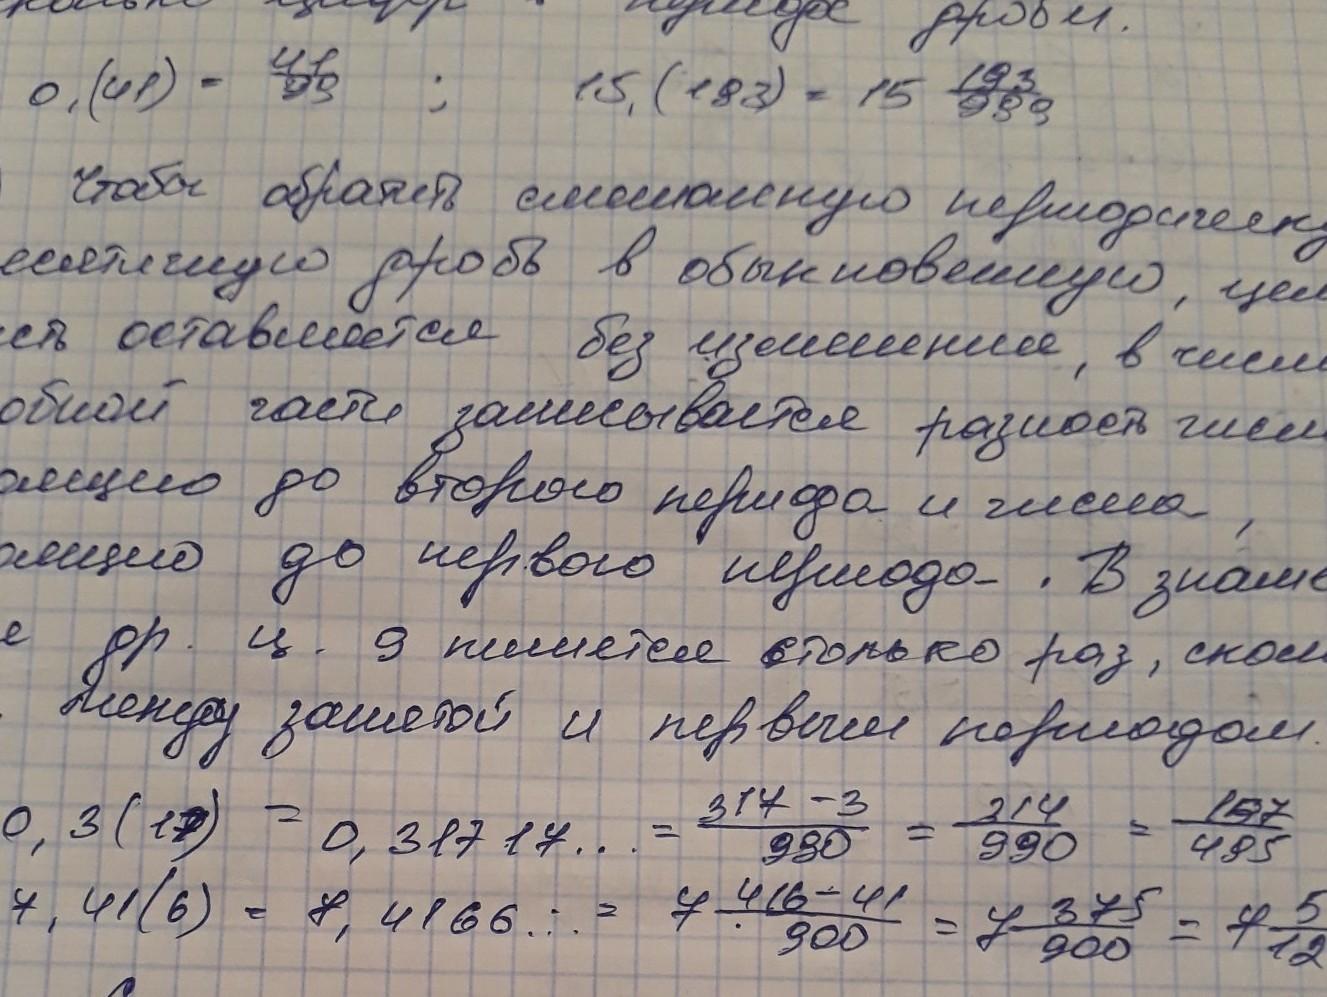 периоде дроби.
0,(41) = 41/99 ; 15,(193) = 15 193/999
Чтобы обратить смешанную периодическу
есятичную дробь в обыкновенную, цел
сть оставляется без изменения, в числ
обной части записывается разность числ
оящию до второго периода и числа,
оящию до первого периода. В знаме
е др. ц. 9 пишется столько раз, скол
между запятой и первым периодом.
0,3(17) = 0,31717... = 317-3/990 = 314/990 = 157/495
7,41(6) = 7,4166... = 7 416-41/900 = 7 375/900 = 7 5/12